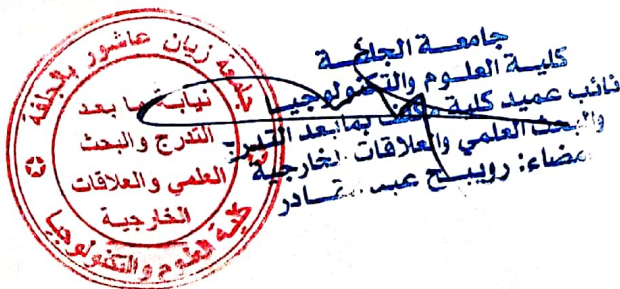 جامعة زيان عاشور بالجلفة
نيابة ما بعد
التدرج والبحث
العلمي والعلاقات
الخارجية
كلية العلوم والتكنولوجيا
جامعـــة الجلفـــة
كليـة العلـوم والتكنولوجيـا
نائب عميد كلية مكلف بمابعد التدرج
والبحث العلمي والعلاقات الخارجية
مضاء: رويبـح عبد القـادر